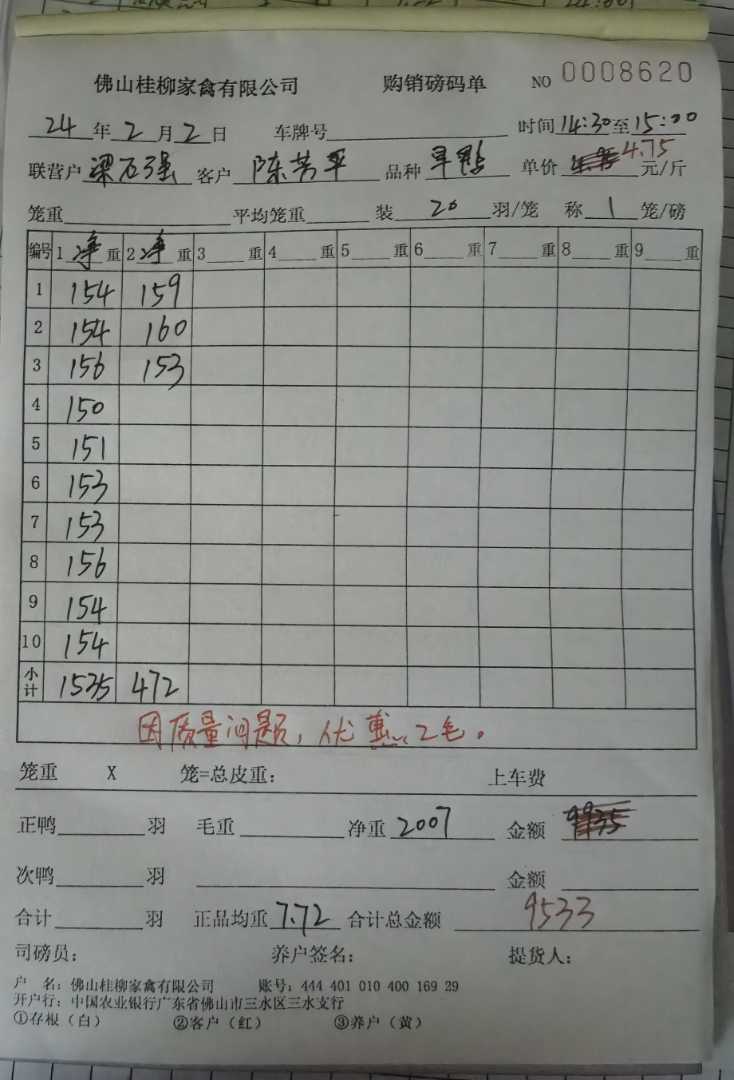 佛山桂柳家禽有限公司 购销磅码单 NO 0008620
24年2月2日 车牌号 时间14:30至15:00
联营户 梁石强 客户 陈芳平 品种 旱鸭 单价 4.75 元/斤
笼重 平均笼重 装 20 羽/笼 称 1 笼/磅
编号 1 净 重 2 净 重 3 重 4 重 5 重 6 重 7 重 8 重 9 重
1 154 159
2 154 160
3 156 153
4 150
5 151
6 153
7 153
8 156
9 154
10 154
小计 1535 472
因质量问题,优惠2毛。
笼重 X 笼=总皮重: 上车费
正鸭 羽 毛重 净重 2007 金额 9935
次鸭 羽 金额
合计 羽 正品均重 7.72 合计总金额 9533
司磅员: 养户签名: 提货人:
户 名: 佛山桂柳家禽有限公司 账号: 444 401 010 400 169 29
开户行: 中国农业银行广东省佛山市三水区三水支行
①存根(白) ②客户(红) ③养户(黄)